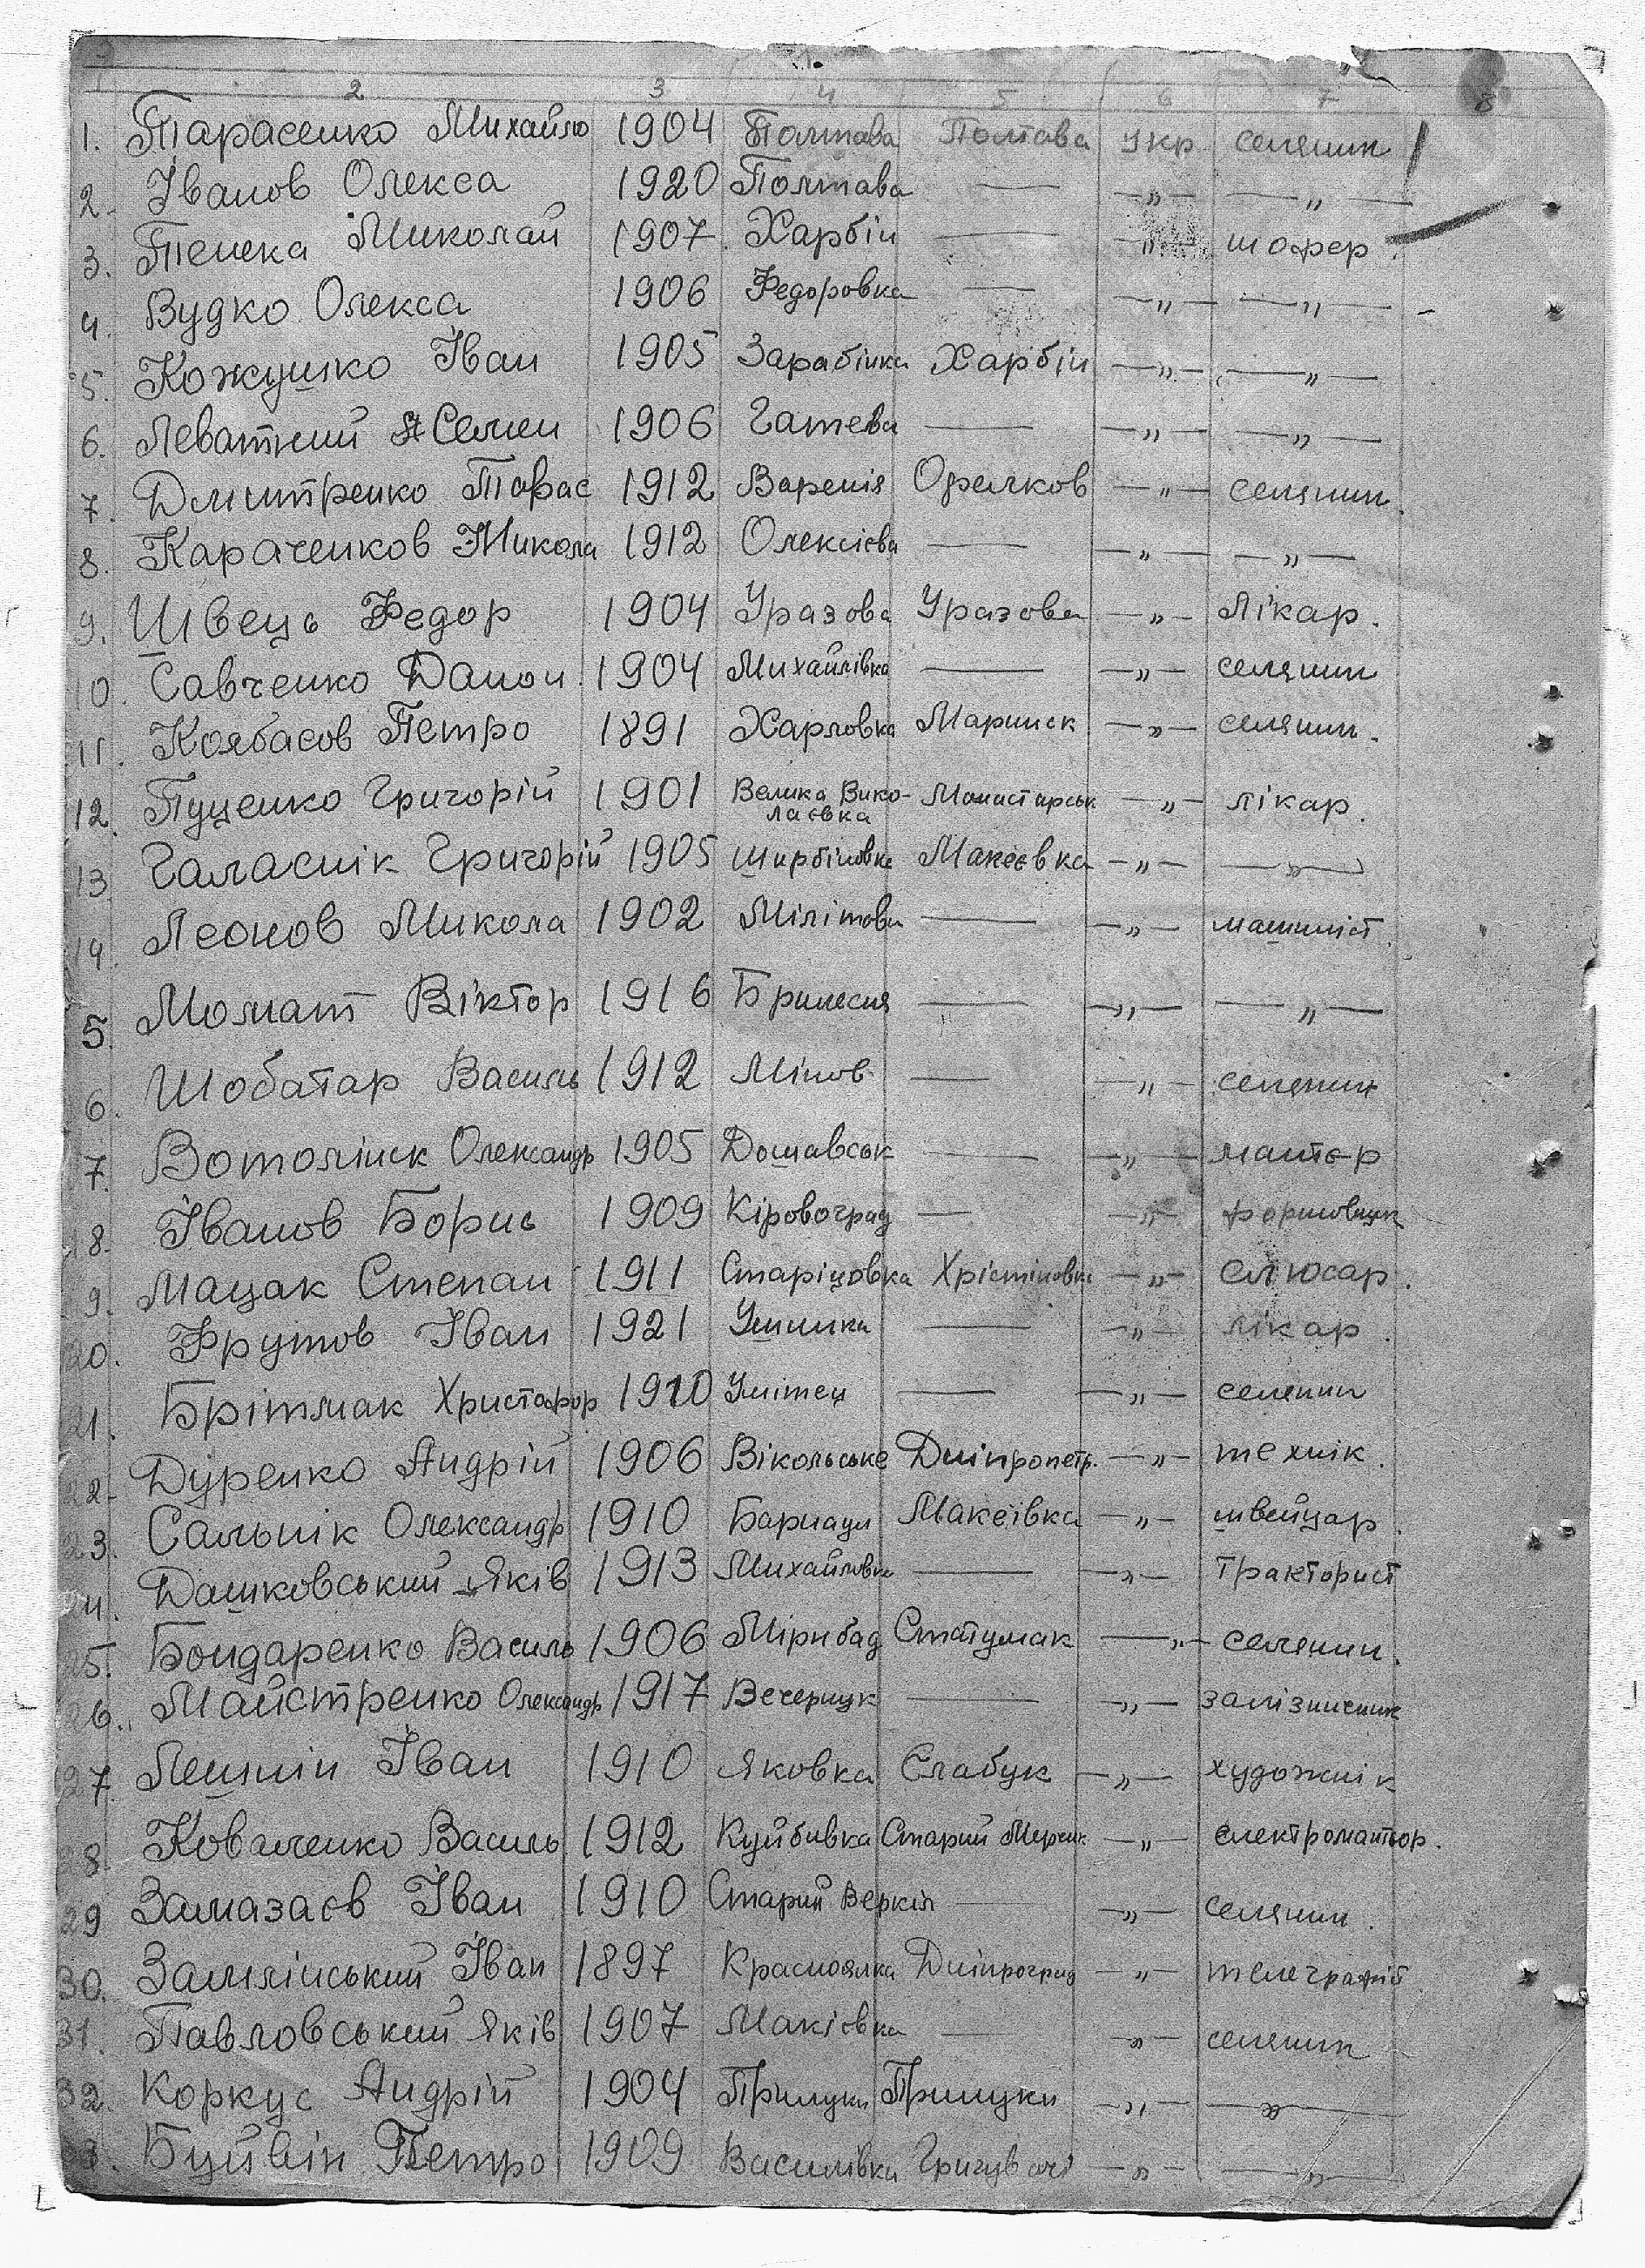 1 2 3 4 5 6 7 8
1. Тарасенко Михайло 1904 Полтава Полтава Укр селянин
2. Іванов Олекса 1920 Полтава — —„— —„—
3. Пенека Миколай 1907. Харбін — —„— шофер.
4. Вудко Олекса 1906 Федоровка — —„— —„—
5. Кожушко Іван 1905 Зарабінка Харбін —„— —„—
6. Леватний Семен 1906 Гатева — —„— —„—
7. Дмитренко Тарас 1912 Варенія Орелков —„— селянин.
8. Караченков Микола 1912 Олексієва — —„— —„—
9. Швець Федор 1904 Уразова Уразова —„— Лікар.
10. Савченко Данон. 1904 Михайлівка — —„— селянин
11. Коябасов Петро 1891 Харловка Маринск —„— селянин.
12. Пуценко Григорій 1901 Велика Вико-лаєвка Монастирськ —„— лікар.
13. Галаснік Григорій 1905 Широбіновка Макеєвка —„— —„—
14. Леонов Микола 1902 Мілітова — —„— машиніст.
5. Момат Віктор 1916 — —„— —„—
6. Шобатар Василь 1912 Мінов — —„— селянин
7. Вотолінск Олександр 1905 Дошавськ — —„— мантьор
18. Іванов Борис 1909 Кіровоград — —„— формовщик
9. Мацак Степан 1911 Старіцовка Хрістіновка —„— слюсар.
20. Фрутов Іван 1921 Ушинка — —„— лікар.
21. Брітмак Христофор 1910 — —„— селенин
22. Дуренко Андрій 1906 Вікольське Дніпропетр. —„— технік.
23. Сальнік Олександр 1910 Барнаул Макеївка —„— швейцар.
24. Дашковський Яків 1913 Михайловка — —„— Тракторист
25. Бондаренко Василь 1906 Мірибад Статумак —„— селенин.
26. Майстренко Олександр 1917 Вечерищк — —„— залізничник
27. Лешнін Іван 1910 Яковка Слабук —„— художнік
28. Коваленко Василь 1912 Куйбивка Старий Мерчик —„— електромантьор.
29 Замазаєв Іван 1910 Старий Веркін — —„— селянин.
30. Замлінський Іван 1897 Красноялка Дніпроград —„— телеграфіст
31. Павловський Яків 1907 Макієвка — —„— селянин
32. Коркус Андрій 1904 Прилуки Прилуки —„— —„—
33. Буйвін Петро 1909 Василівка —„— —„—